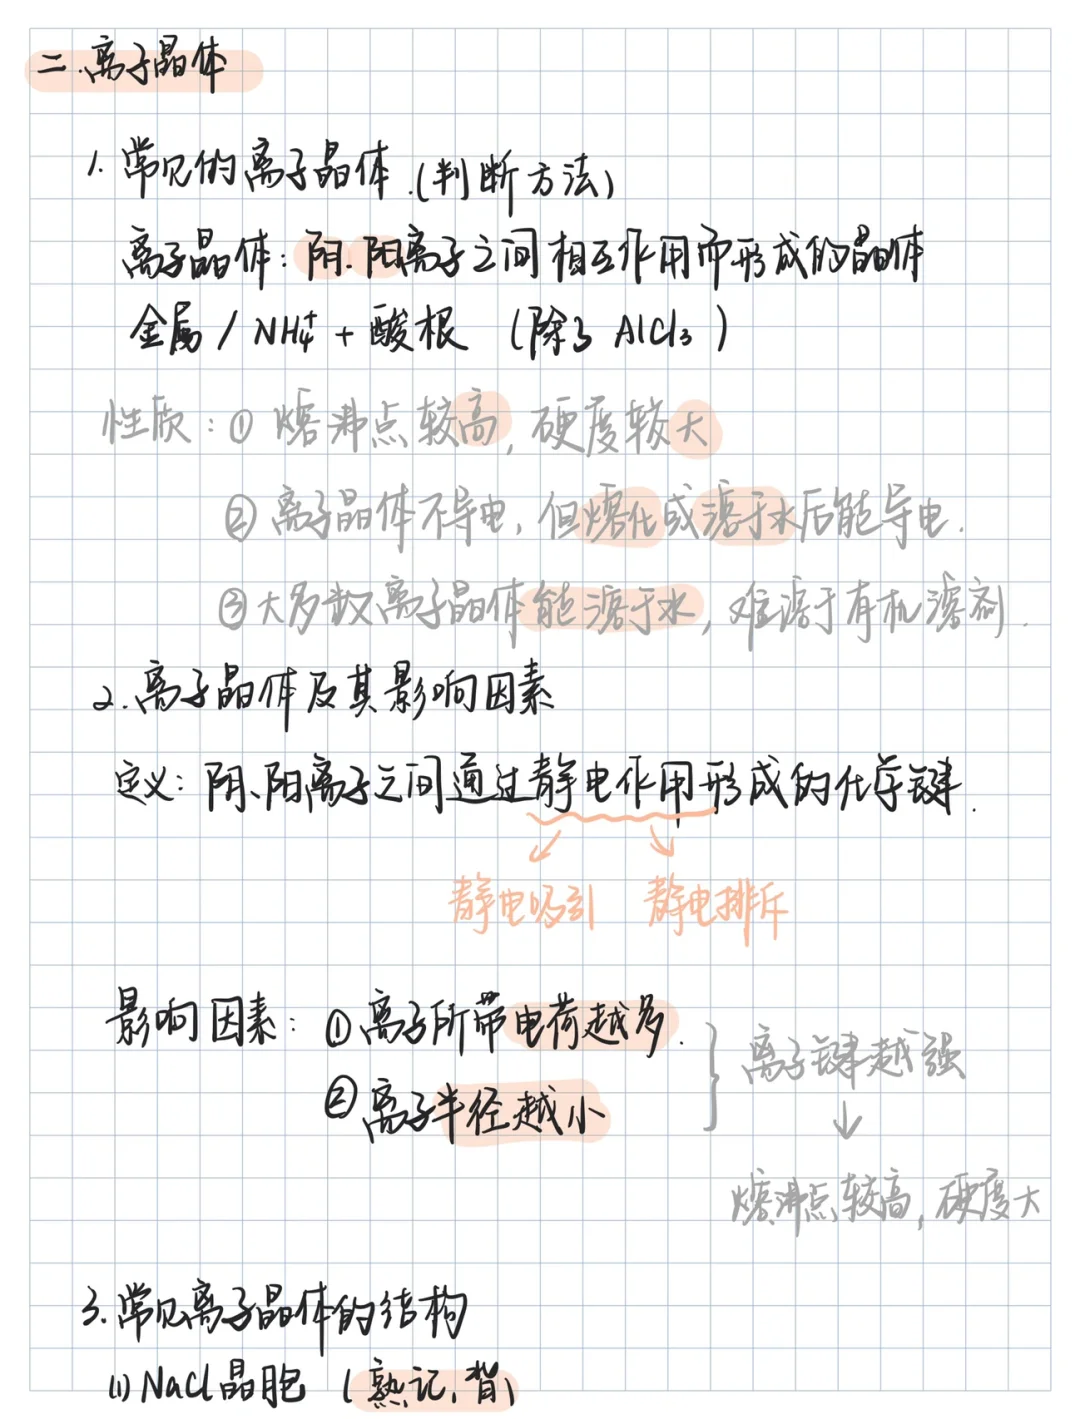 二.离子晶体
1.常见的离子晶体.(判断方法)
离子晶体:阴.阳离子之间相互作用而形成的晶体
金属/NH₄⁺+酸根 (除了AlCl₃)
性质:①熔沸点较高,硬度较大
②离子晶体不导电,但熔化或溶于水后能导电.
③大多数离子晶体能溶于水,难溶于有机溶剂.
2.离子晶体及其影响因素
定义:阴、阳离子之间通过静电作用形成的化学键.
静电吸引 静电排斥
影响因素:①离子所带电荷越多.
②离子半径越小
离子键越强
熔沸点较高,硬度大
3.常见离子晶体的结构
(1)NaCl晶胞 (熟记,背)